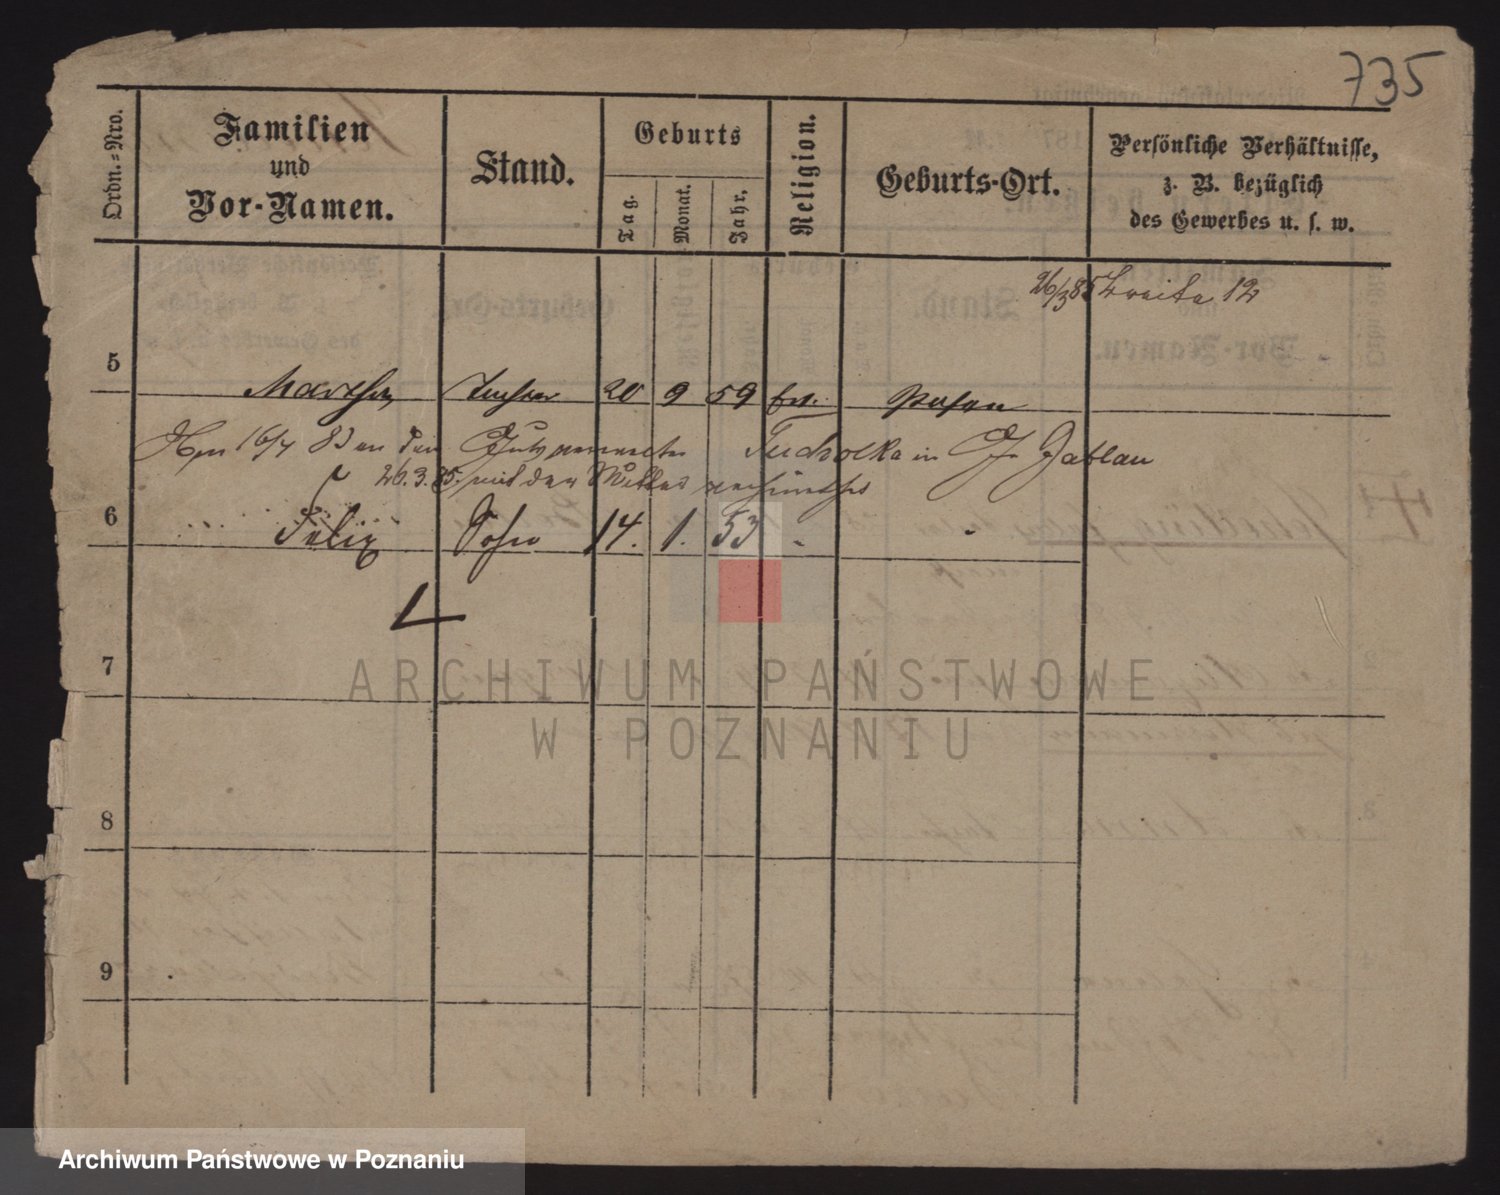 735
Ordn.=Nro.
Familien
und
Vor-Namen.
Stand.
Geburts
Tag.
Monat.
Jahr.
Religion.
Geburts-Ort.
Persönliche Verhältnisse,
z. B. bezüglich
des Gewerbes u. s. w.
26/3 85 Breite 12
5
Martha Tochter 20 9 59 ev. Posen
16/4 83 an den Gutsverwalter Tucholka in Gr Jablau
26.3.85. mit der Mutter
6 Felix Sohn 14. 1. 53 - -
7
8
9
ARCHIWUM PAŃSTWOWE
W POZNANIU
Archiwum Państwowe w Poznaniu